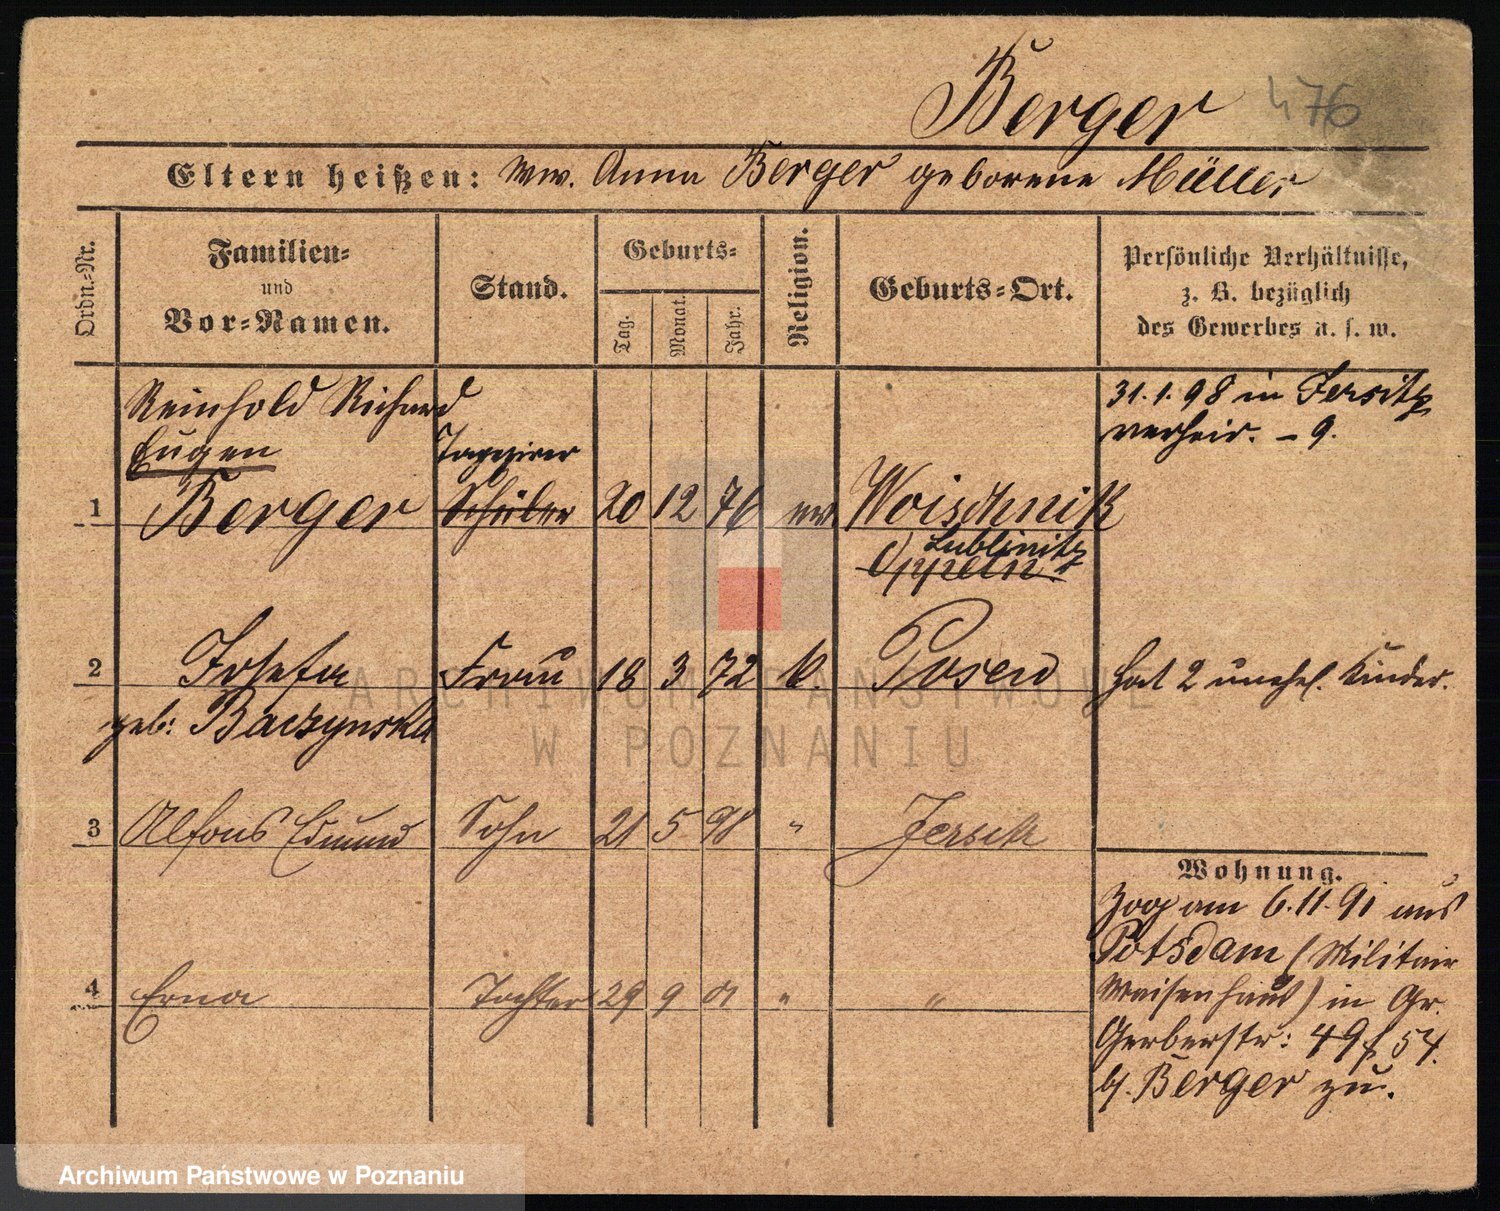 Berger 476
Eltern heißen: Ww. Anna Berger geborene Müller
Ordn.-Nr.
Familien-
und
Vor-Namen.
Stand.
Geburts-
Tag.
Monat.
Jahr.
Religion.
Geburts-Ort.
Persönliche Verhältnisse,
z. B. bezüglich
des Gewerbes u. s. w.
Reinhold Richard
Eugen
1 Berger
Tappzirer
Schüler
20 12 76 ev. Woischnik
Lublinitz
Oppeln
31.1.98 in Jersitz
verheir. – 9.
2 Josefa Frau 18 3 72 k. Posen Hat 2 unehel. Kinder.
geb: Baczynska
3 Alfons Edmund Sohn 21 5 98 " Jersitz
4 Erna Tochter 29 9 01 " "
Wohnung.
Zog am 6.11.91 aus
Potsdam (Militair
Waisenhaus) in Gr.
Gerberstr: 49/54.
b/. Berger zu.
ARCHIWUM PAŃSTWOWE
W POZNANIU
Archiwum Państwowe w Poznaniu